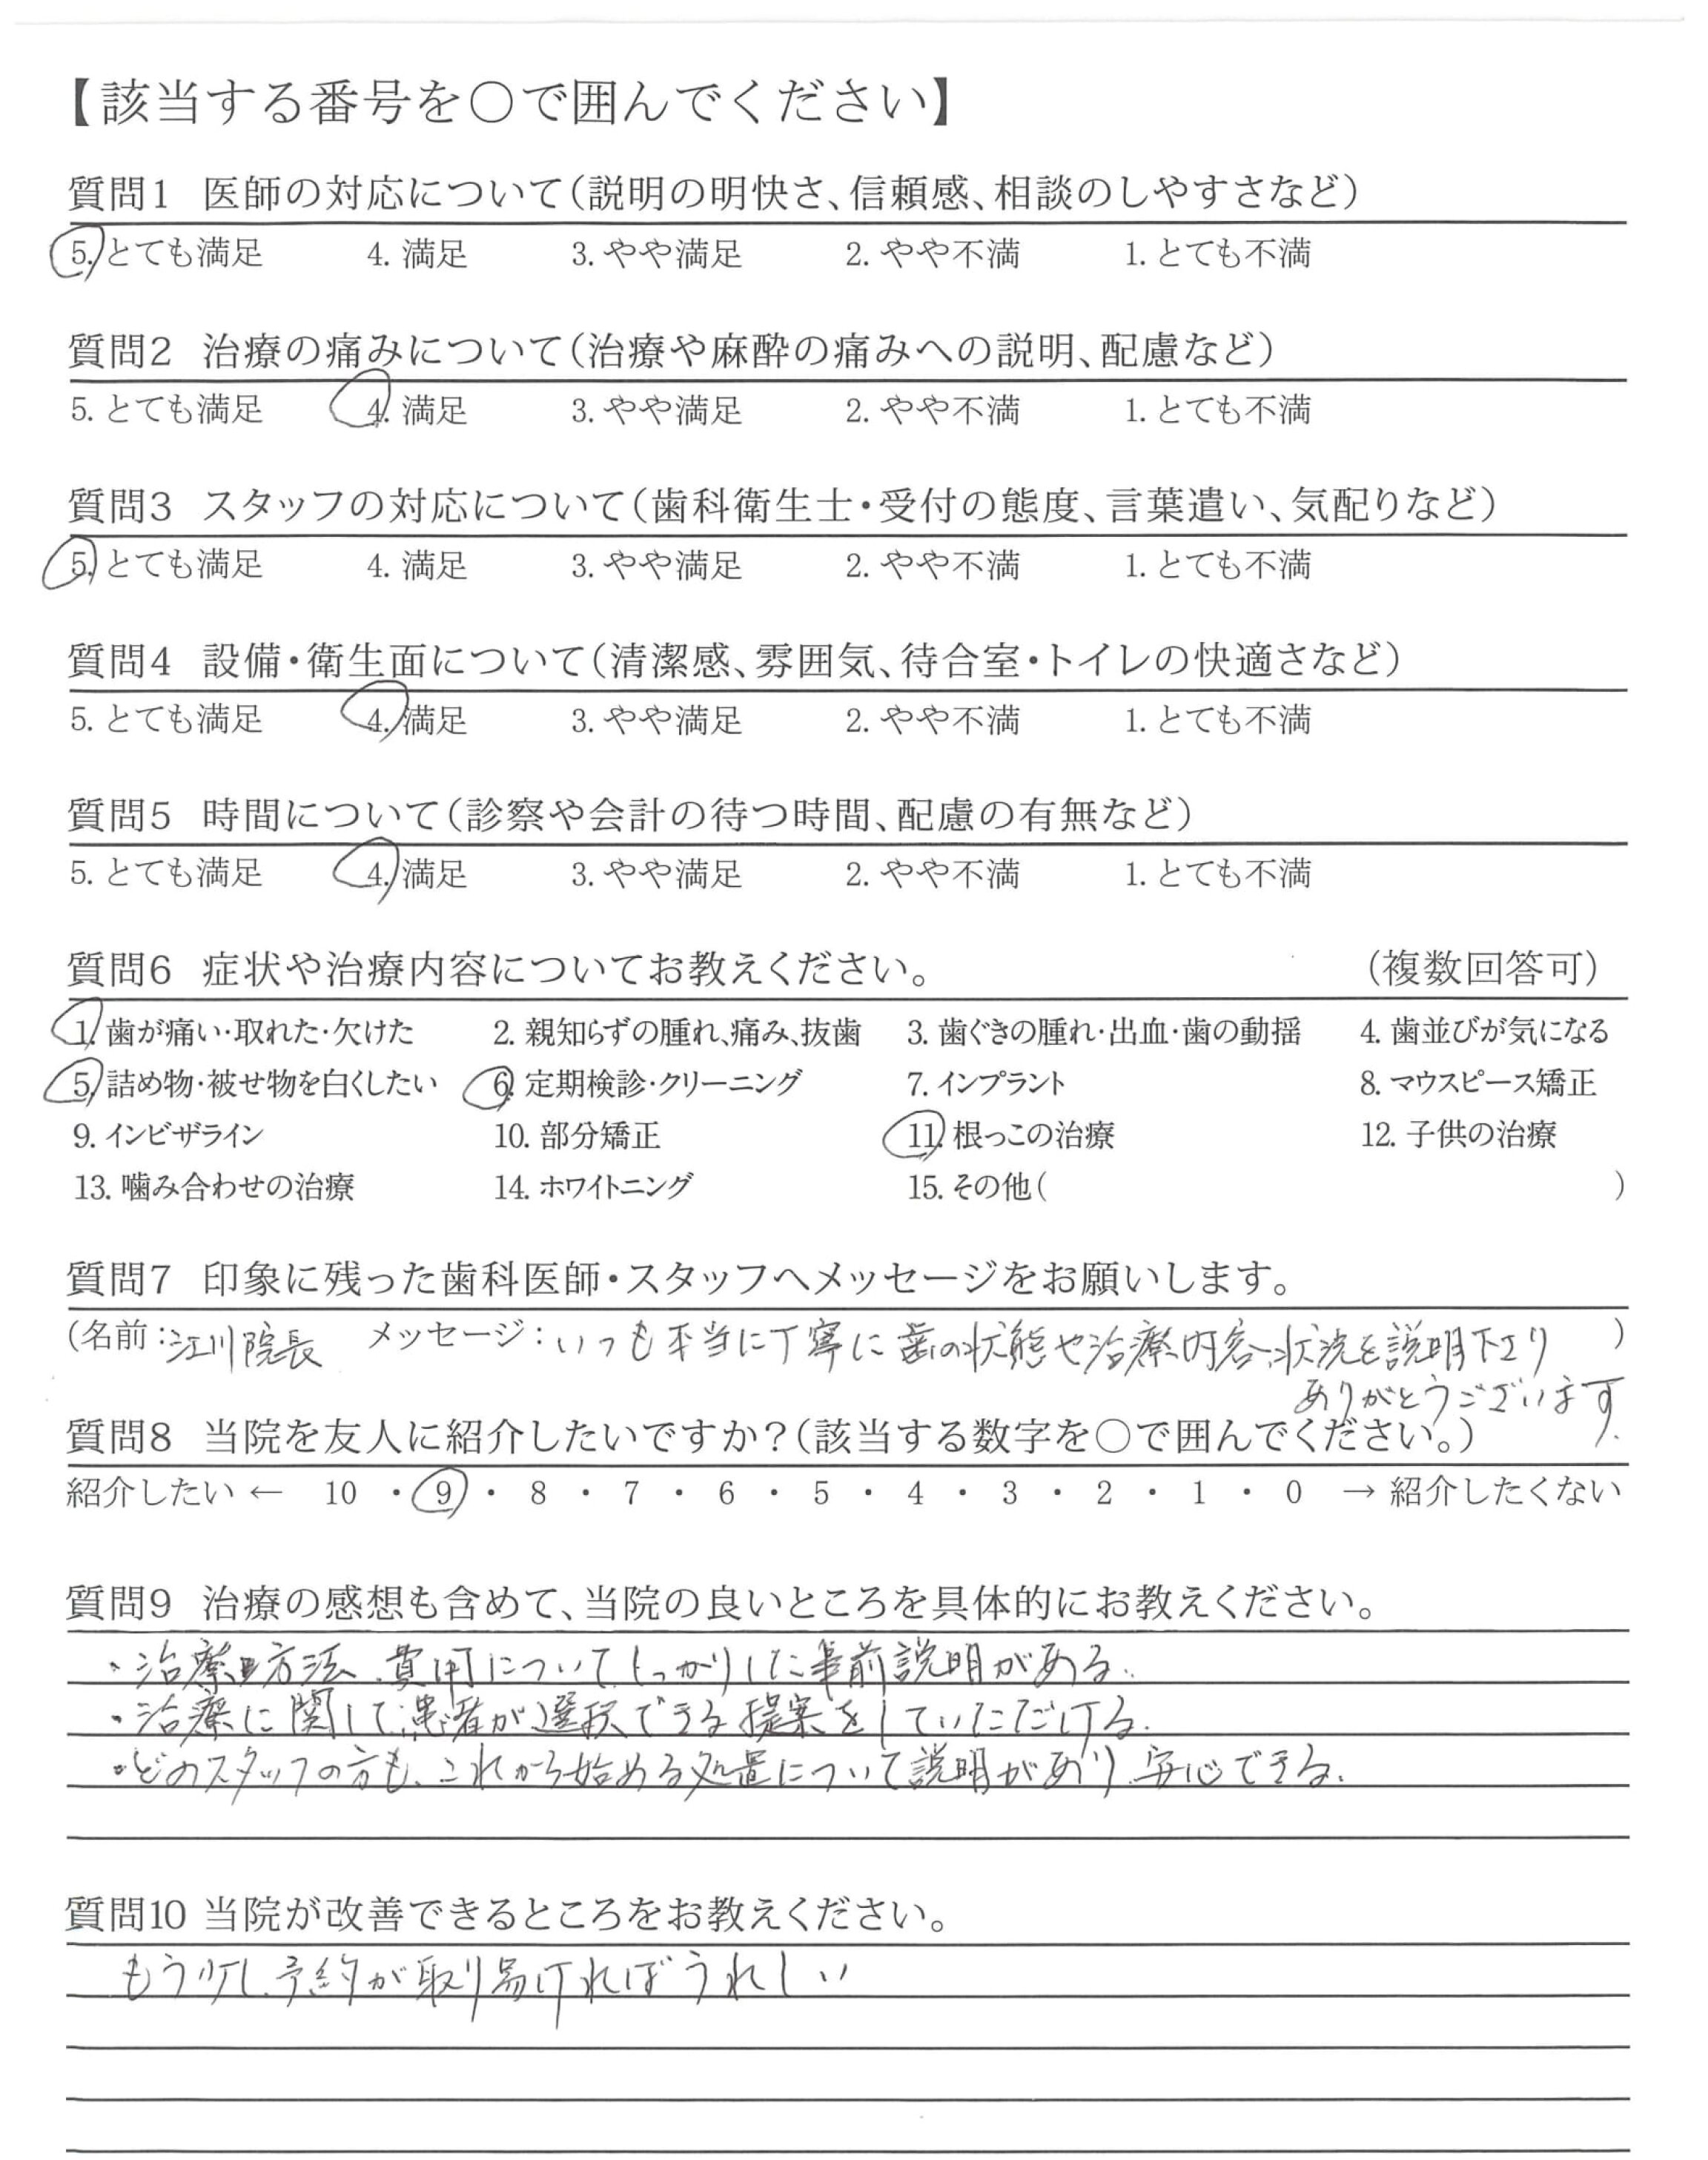 【該当する番号を○で囲んでください】
質問1 医師の対応について(説明の明快さ、信頼感、相談のしやすさなど)
5. とても満足 4. 満足 3. やや満足 2. やや不満 1. とても不満
質問2 治療の痛みについて(治療や麻酔の痛みへの説明、配慮など)
5. とても満足 4. 満足 3. やや満足 2. やや不満 1. とても不満
質問3 スタッフの対応について(歯科衛生士・受付の態度、言葉遣い、気配りなど)
5. とても満足 4. 満足 3. やや満足 2. やや不満 1. とても不満
質問4 設備・衛生面について(清潔感、雰囲気、待合室・トイレの快適さなど)
5. とても満足 4. 満足 3. やや満足 2. やや不満 1. とても不満
質問5 時間について(診察や会計の待つ時間、配慮の有無など)
5. とても満足 4. 満足 3. やや満足 2. やや不満 1. とても不満
質問6 症状や治療内容についてお教えください。 (複数回答可)
1. 歯が痛い・取れた・欠けた 2. 親知らずの腫れ、痛み、抜歯 3. 歯ぐきの腫れ・出血・歯の動揺 4. 歯並びが気になる
5. 詰め物・被せ物を白くしたい 6. 定期検診・クリーニング 7. インプラント 8. マウスピース矯正
9. インビザライン 10. 部分矯正 11. 根っこの治療 12. 子供の治療
13. 噛み合わせの治療 14. ホワイトニング 15. その他( )
質問7 印象に残った歯科医師・スタッフへメッセージをお願いします。
(名前:江川院長 メッセージ:いつも本当に丁寧に歯の状態や治療内容、状況を説明下さり )
ありがとうございます。
質問8 当院を友人に紹介したいですか?(該当する数字を○で囲んでください。)
紹介したい ← 10 ・ 9 ・ 8 ・ 7 ・ 6 ・ 5 ・ 4 ・ 3 ・ 2 ・ 1 ・ 0 → 紹介したくない
質問9 治療の感想も含めて、当院の良いところを具体的にお教えください。
・治療方法、費用についてしっかりした事前説明がある。
・治療に関して、患者が選択できる提案をしていただける。
・どのスタッフの方も、これから始める処置について説明があり、安心できる。
質問10 当院が改善できるところをお教えください。
もう少し予約が取り易ければうれしい